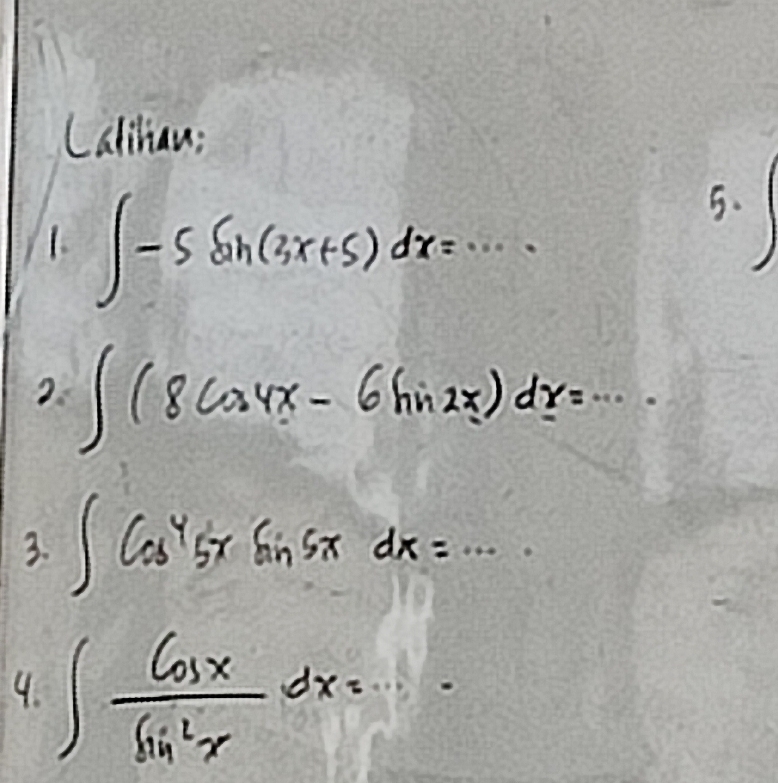 Latihan:
1. ∫ -5 sin(3x+5) dx = ....
5. ∫
2. ∫ (8 cos 4x - 6 sin 2x) dx = ....
3. ∫ Cos⁴ 5x sin 5x dx = ....
4. ∫ Cos x / sin² x dx = ....